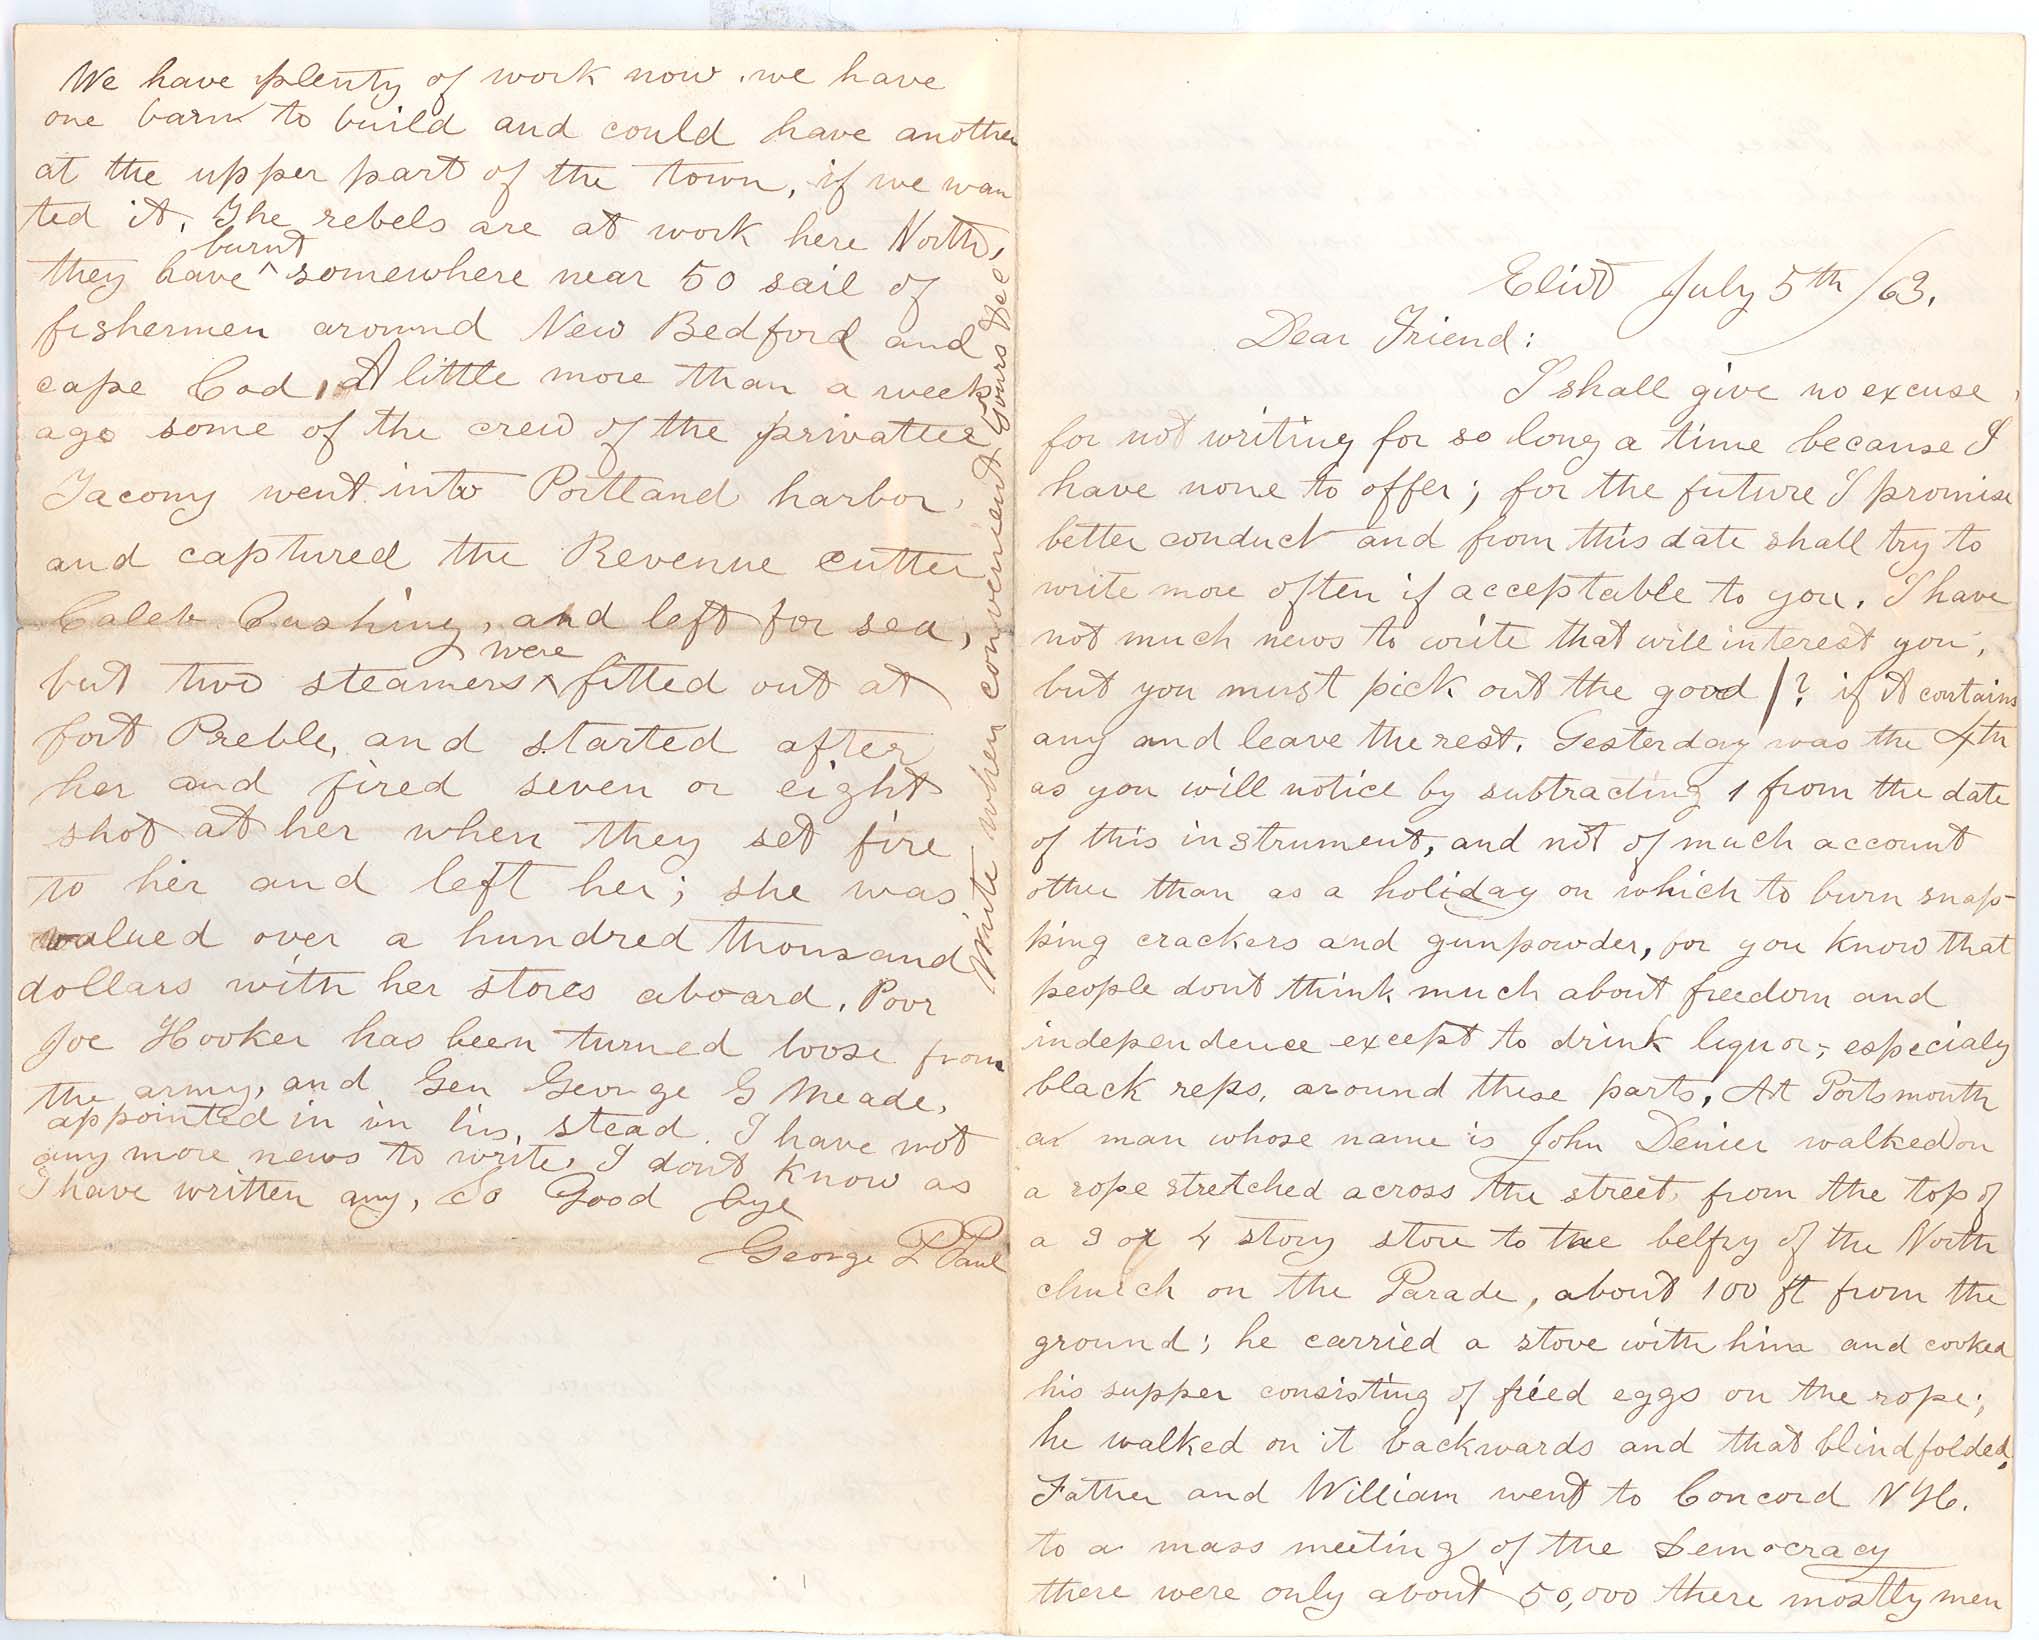 Eliot July 5th /63.
Dear Friend:
I shall give no excuse
for not writing for so long a time because I
have none to offer; for the future I promise
better conduct and from this date shall try to
write more often if acceptable to you. I have
not much news to write that will interest you,
but you must pick out the good /? if it contains
any and leave the rest. Yesterday was the 4th
as you will notice by subtracting 1 from the date
of this instrument, and not of much account
other than as a holiday on which to burn snap-
ping crackers and gunpowder, for you know that
people dont think much about freedom and
independence except to drink liquor, especialy
black reps, around these parts. At Portsmouth
a man whose name is John Denier walked on
a rope stretched across the street from the top of
a 3 or 4 story store to the belfry of the North
church on the Parade, about 100 ft from the
ground; he carried a stove with him and cooked
his supper consisting of fried eggs on the rope;
he walked on it backwards and that blindfolded,
Father and William went to Concord NH.
to a mass meeting of the Democracy
there were only about 50,000 there mostly men
We have plenty of work now. we have
one barn to build and could have another
at the upper part of the town, if we wan
ted it. The rebels are at work here North,
they have ^burnt somewhere near 50 sail of
fishermen around New Bedford and
cape Cod, A little more than a week
ago some of the crew of the privatter
Tacony went into Portland harbor,
and captured the Revenue cutter
Caleb Cushing, and left for sea,
but two steamers ^were fitted out at
fort Preble, and started after
her and fired seven or eight
shot at her when they set fire
to her and left her; she was
valued over a hundred thousand
dollars with her stores aboard. Poor
Joe Hooker has been turned loose from
the army, and Gen George G Meade,
appointed in in his stead. I have not
any more news to write. I dont know as
I have written any, So Good bye
George P Paul
Write when convenient Yours